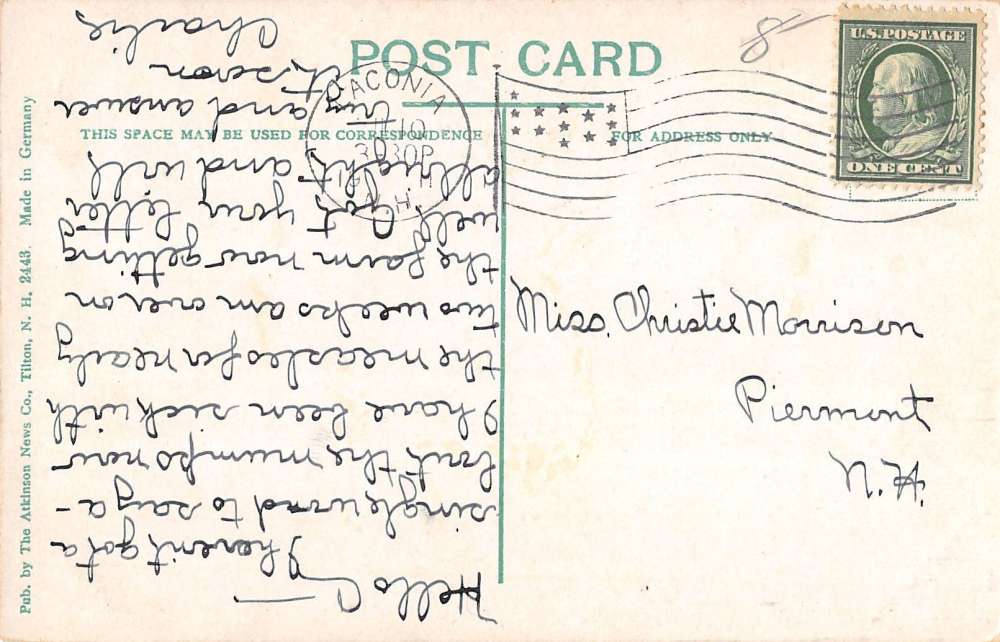 POST CARD
THIS SPACE MAY BE USED FOR CORRESPONDENCE
FOR ADDRESS ONLY
U.S. POSTAGE
ONE CENT
LACONIA
10
330P
N.H.
8
Miss. Christie Morrison
Piermont
N.H.
Hello C—
I havent got a
single word to say a-
bout the mumps now
I have been sick with
the measles for nearly
two weeks am over on
the farm now getting
well Got your letter
allright and will
try and answer
it soon
Charlie
Pub. by The Atkinson News Co., Tilton, N. H. 2443. Made in Germany